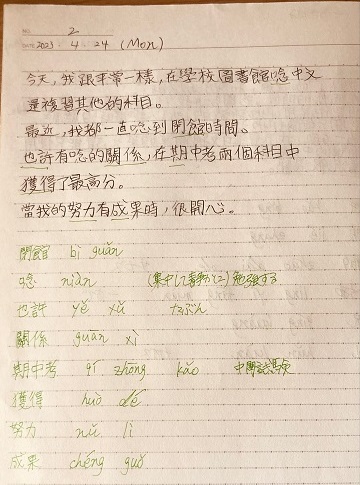 NO. 2
DATE 2023 . 4 . 24 (Mon)
今天,我跟平常一樣,在學校圖書館唸中文
還複習其他的科目。
最近,我都一直唸到閉館時間。
也許有唸的關係,在期中考兩個科目中
獲得了最高分。
當我的努力有成果時,很開心。
閉館 bì guǎn
唸 niàn (集中して静かに)勉強する
也許 yě xǔ たぶん
關係 guān xì
期中考 qí zhōng kǎo 中間試験
獲得 huò dé
努力 nǔ lì
成果 chéng guǒ